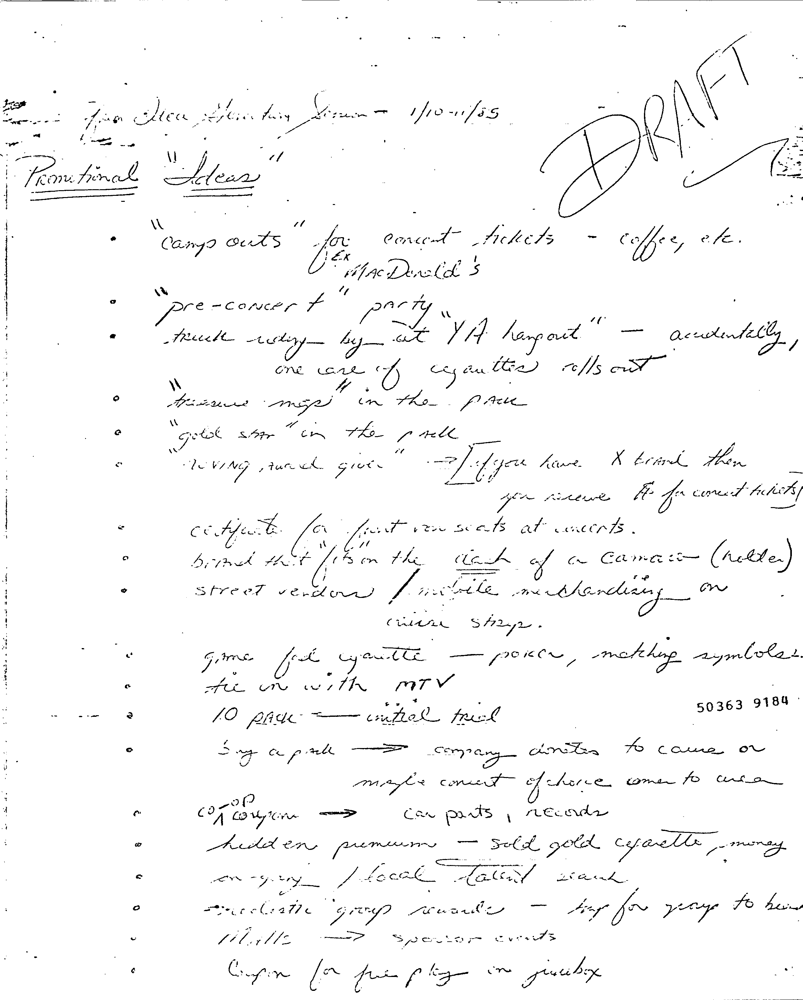 1/10-11/85
DRAFT
Promotional "Ideas"
• "camp outs" for concert tickets - coffee, etc.
Ex MacDonald's
• "pre-concert" party
• truck riding by at "YA hangout" — accidentally,
one case of cigarettes rolls out
• "treasure map" in the pack
• "gold star" in the pack
• "roving, award giver" → [if you have X brand then
you receive for concert tickets]
• certificate for front row seats at concerts.
• brand that "fits" on the dash of a Camaro (holder)
• street vendors / mobile merchandising on
cruise strip.
• game fad cigarette — poker, matching symbols.
• tie in with MTV
• 10 pack — initial trial
50363 9184
• buy a pack → company donates to cause or
maybe concert of choice comes to area
• co-op coupon → car parts, records
• hidden premium — solid gold cigarette, money
• on-going / local talent search
• group rewards — trip for group to
• Malls → sponsor events
• Coupon for free play in jukebox